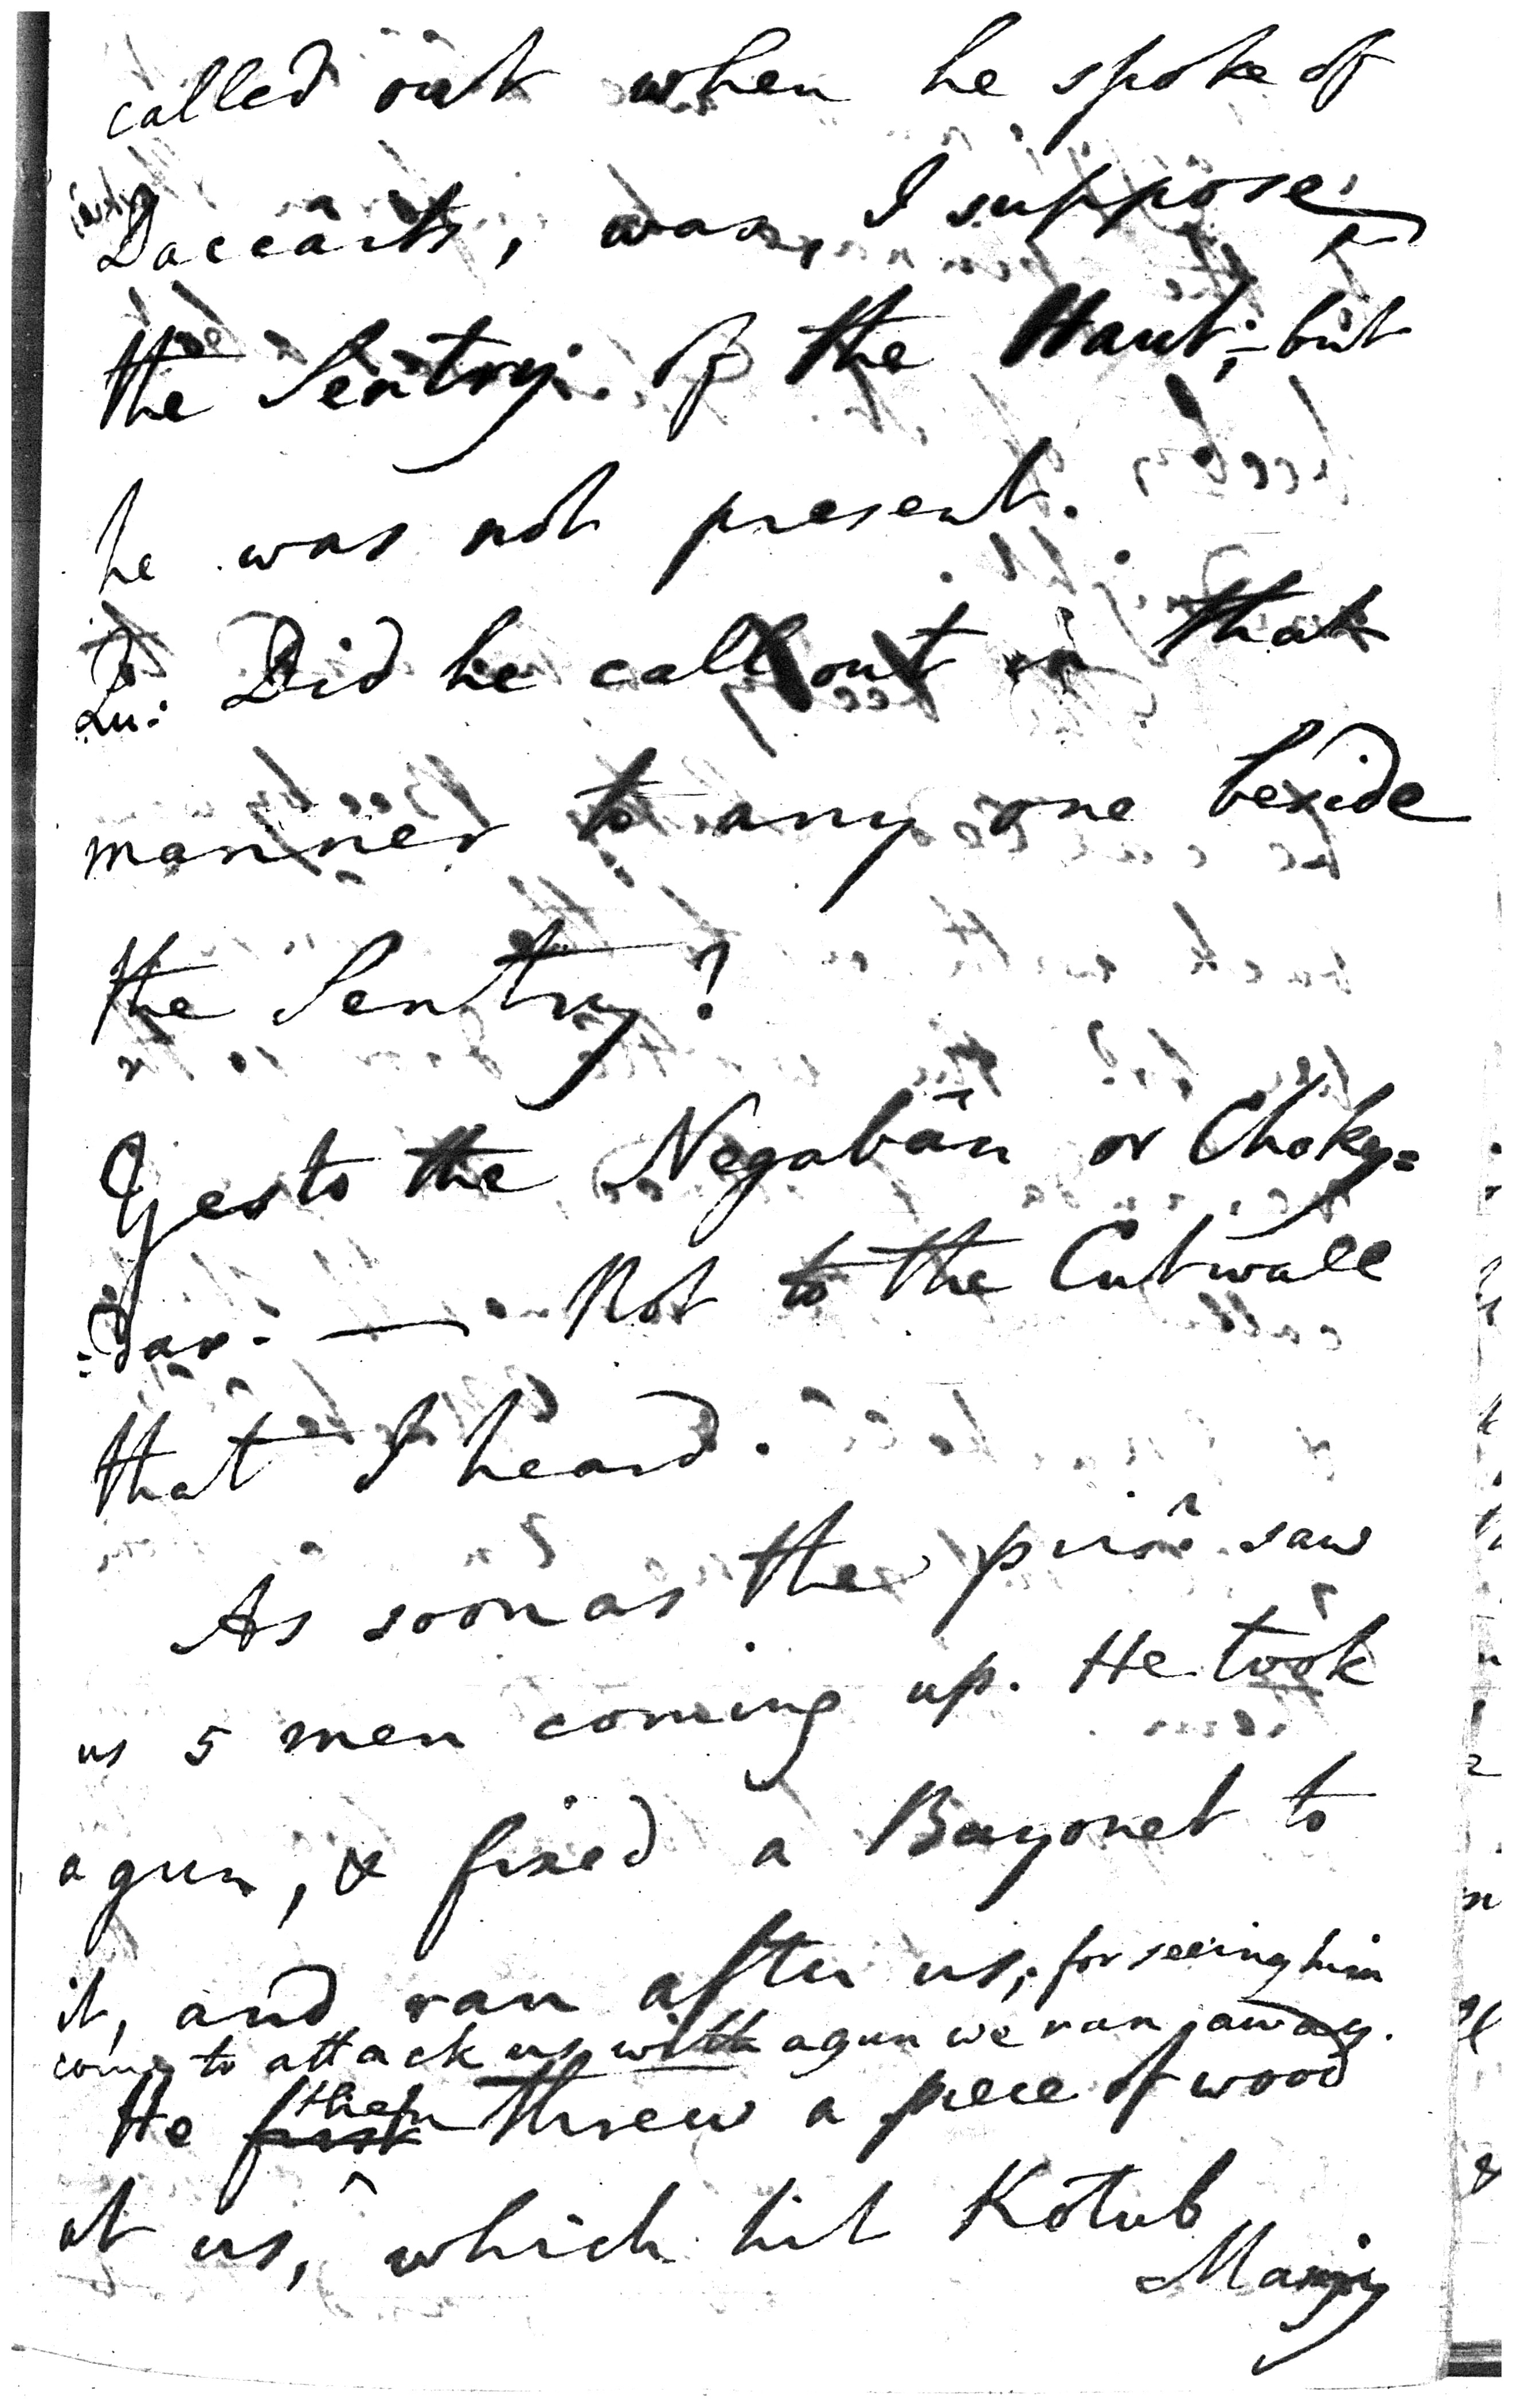 called out when he spoke of
Daccaits, was, I suppose,
the Sentry of the Haut; but
he was not present.
Qu: Did he call out in that
manner to any one beside
the Sentry?
Yes to the Negabân or Choky=
=dar. — Not to the Cutwall
that I heard.
As soon as the prisr saw
us 5 men coming up. He took
a gun, & fixed a Bayonet to
it, and ran after us; for seeing him
coming to attack us with a gun we ran away.
He then threw a piece of wood
at us, which hit Kotub